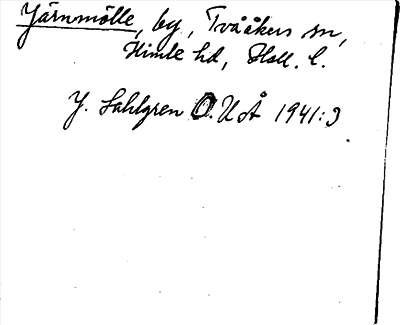 Järnmölle, by, Tvååkers sn,
Himle hd, Hall. l.
J. Sahlgren O.UÅ 1941:3